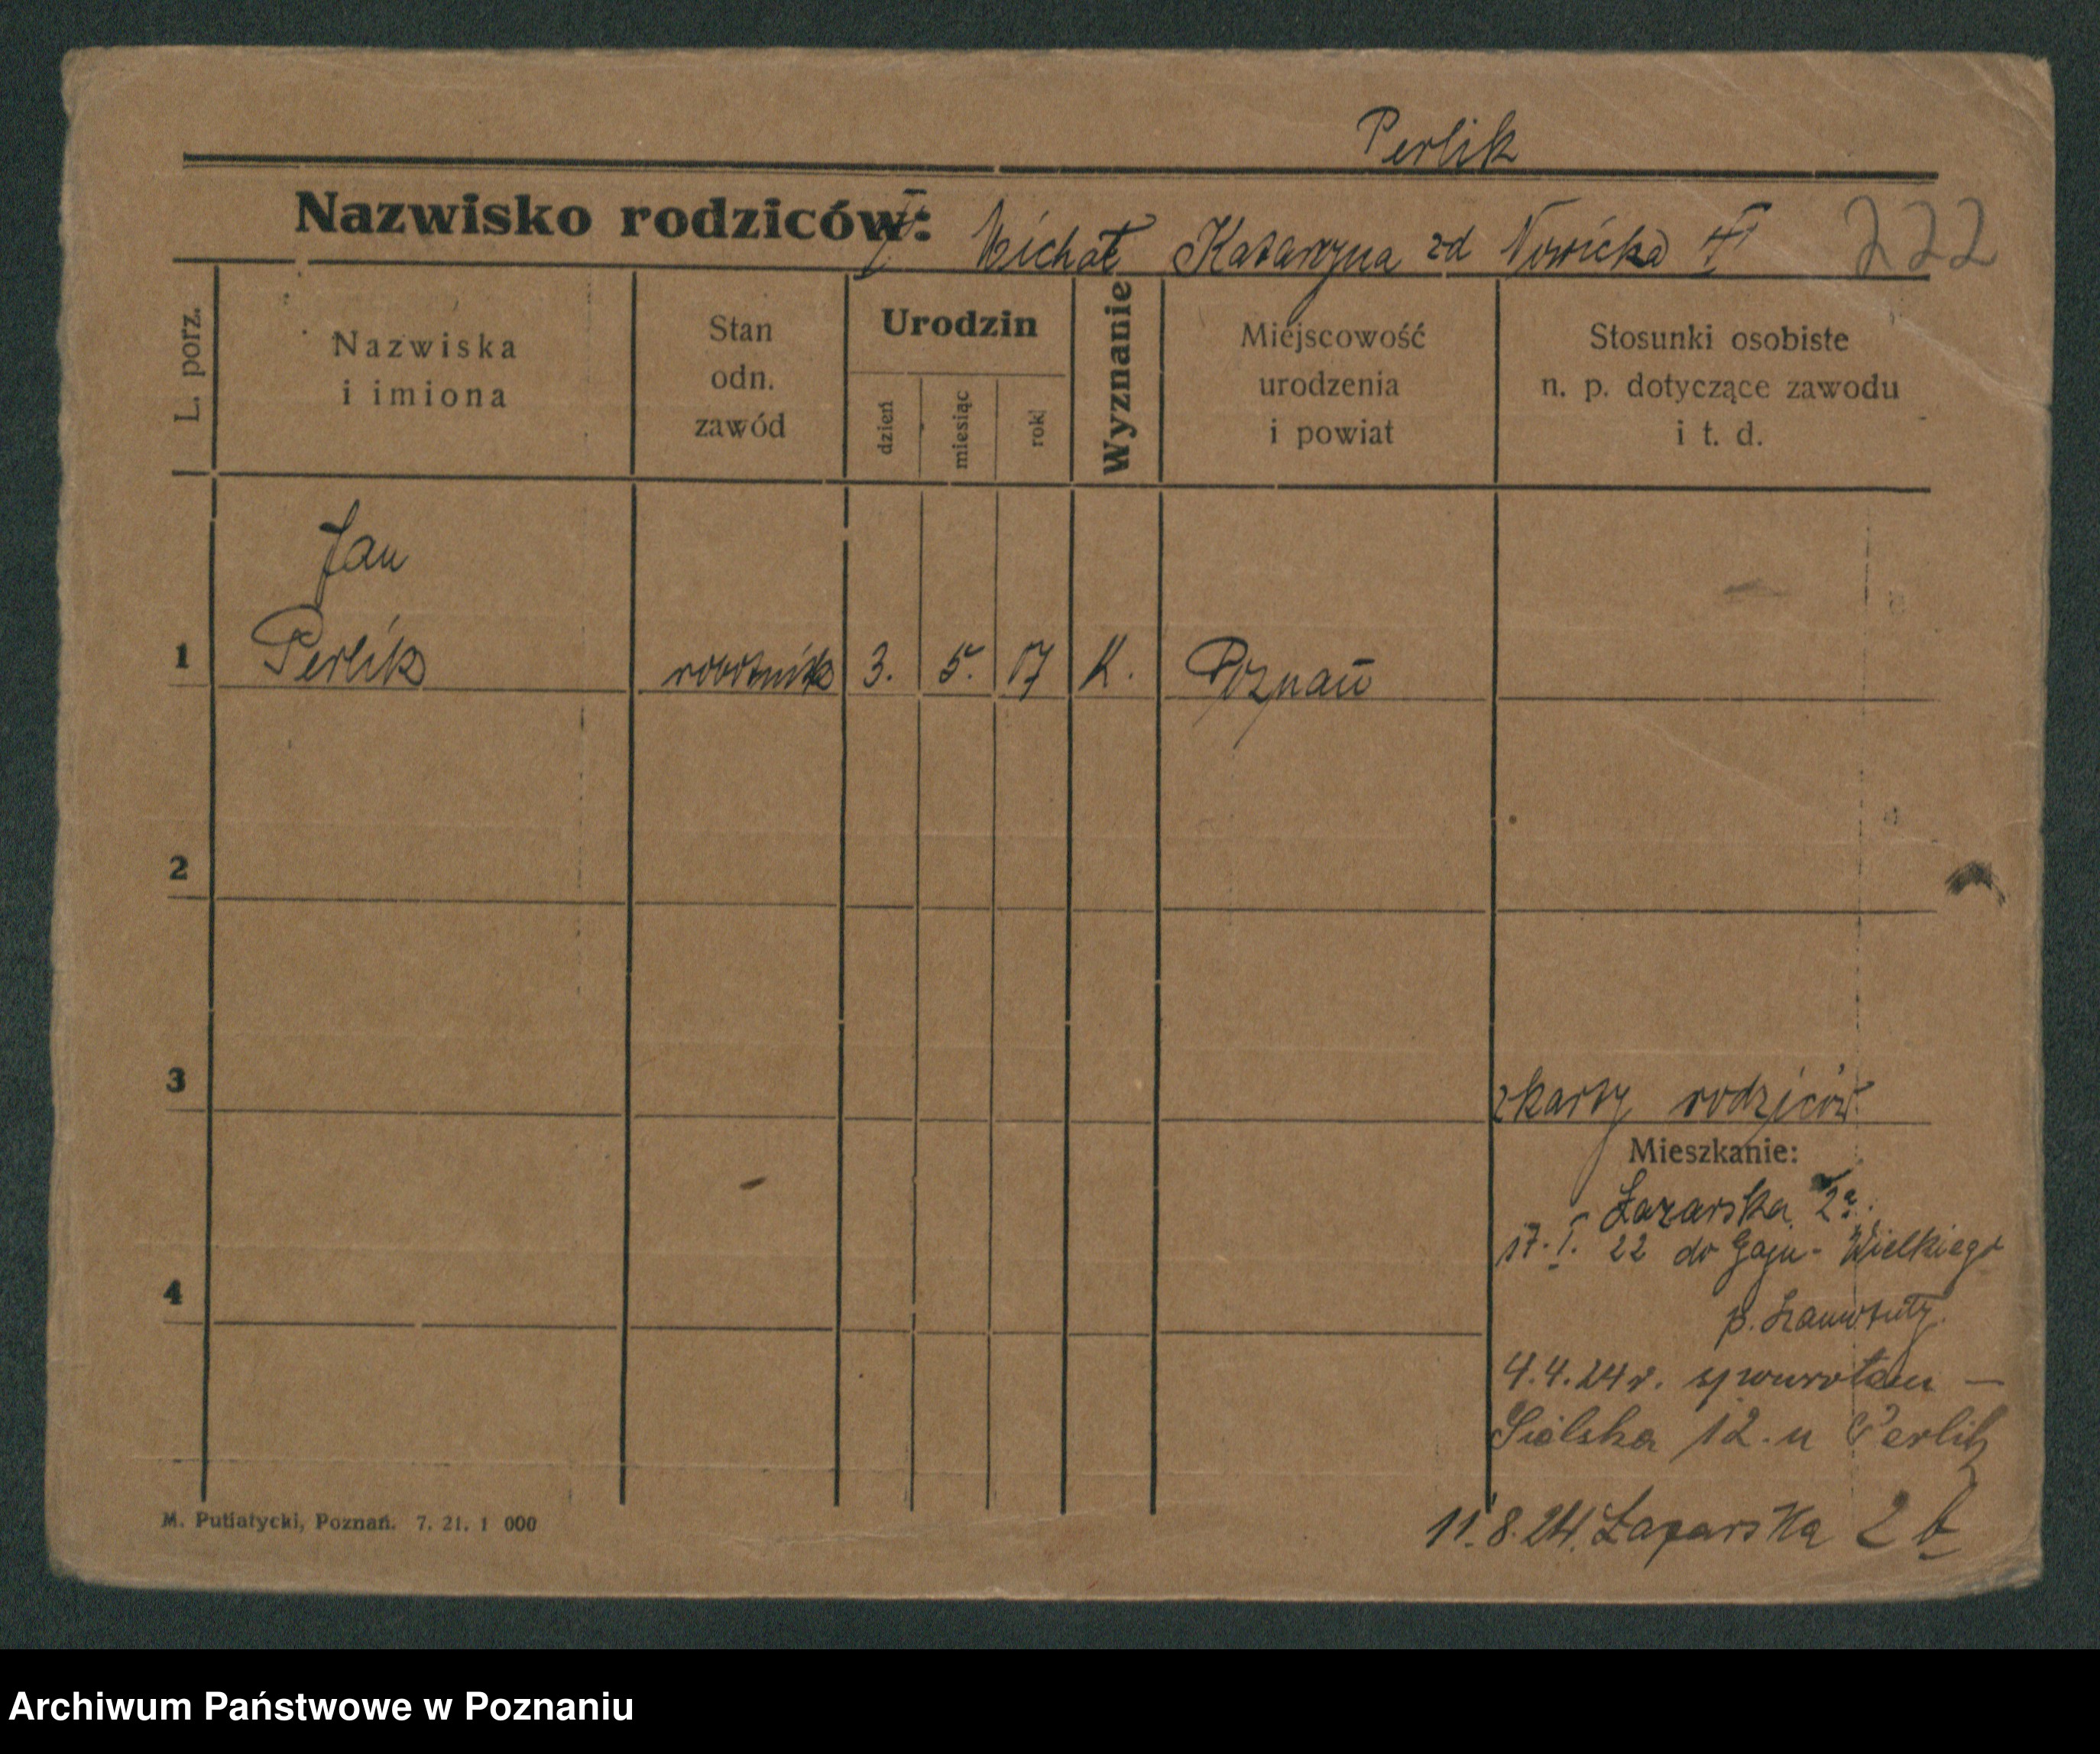 Perlik
Nazwisko rodziców: Michał Katarzyna zd Nowicka 222
L. porz.
Nazwiska
i imiona
Stan
odn.
zawód
Urodzin
dzień
miesiąc
rok
Wyznanie
Miejscowość
urodzenia
i powiat
Stosunki osobiste
n. p. dotyczące zawodu
i t. d.
Jan
1 Perlik robotnik 3. 5. 07 K. Poznań
2
3
z karty rodziców
Mieszkanie:
Łazarska 2a.
17. I. 22 do Gaju-Wielkiego
4
p. Szamotuły.
4.4.24 r. spowrotem —
Sielska 12. u Perlik
11.8.24. Łazarska 2 b
M. Putiatycki, Poznań. 7. 21. 1 000
Archiwum Państwowe w Poznaniu